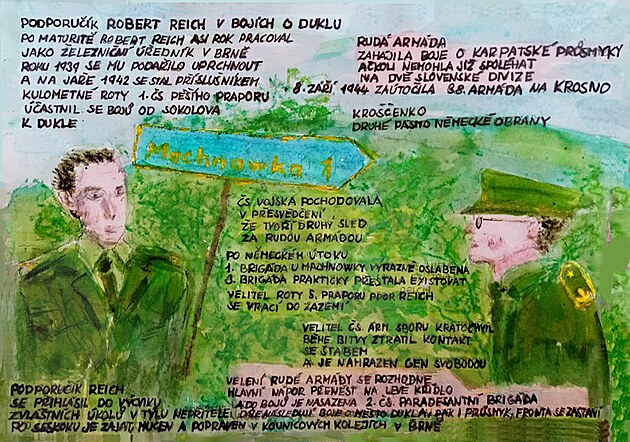 PODPORUČÍK ROBERT REICH V BOJÍCH O DUKLU
PO MATURITĚ ROBERT REICH ASI ROK PRACOVAL
JAKO ŽELEZNIČNÍ ÚŘEDNÍK V BRNĚ
ROKU 1939 SE MU PODAŘILO UPRCHNOUT
A NA JAŘE 1942 SE STAL PŘÍSLUŠNÍKEM
KULOMETNÉ ROTY 1. ČS PĚŠÍHO PRAPORU
ÚČASTNIL SE BOJŮ OD SOKOLOVA
K DUKLE
RUDÁ ARMÁDA
ZAHÁJILA BOJE O KARPATSKÉ PRŮSMYKY
AČKOLI NEMOHLA JIŽ SPOLÉHAT
NA DVĚ SLOVENSKÉ DIVIZE
8. ZÁŘÍ 1944 ZAÚTOČILA 38. ARMÁDA NA KROSNO
KROŠČENKO
DRUHÉ PÁSMO NĚMECKÉ OBRANY
Machnowka 1
ČS VOJSKA POCHODOVALA
V PŘESVĚDČENÍ
ŽE TVOŘÍ DRUHÝ SLED
ZA RUDOU ARMÁDOU
PO NĚMECKÉM ÚTOKU
1. BRIGÁDA U MACHNOWKY VÝRAZNĚ OSLABENA
3. BRIGÁDA PRAKTICKY PŘESTALA EXISTOVAT
VELITEL ROTY 5. PRAPORU PPOR REICH
SE VRACÍ DO ZÁZEMÍ
VELITEL ČS. ARM. SBORU KRATOCHVÍL
BĚHE BITVY ZTRATIL KONTAKT
SE ŠTÁBEM
A JE NAHRAZEN GEN SVOBODOU
PODPORUČÍK REICH
SE PŘIHLÁSIL DO VÝCVIKU
ZVLÁŠTNÍCH ÚKOLŮ V TÝLU NEPŘÍTELE
PO SESKOKU JE ZAJAT, MUČEN A POPRAVEN V KOUNICOVÝCH KOLEJÍCH V BRNĚ
VELENÍ RUDÉ ARMÁDY SE ROZHODNE
HLAVNÍ NÁPOR PŘENÉST NA LEVÉ KŘÍDLO
A DO BOJŮ JE NASAZENA 2. ČS. PARADESANTNÍ BRIGÁDA
NÁSLEDUJÍ BOJE O MĚSTO DUKLA, PAK I PRŮSMYK, FRONTA SE ZASTAVÍ